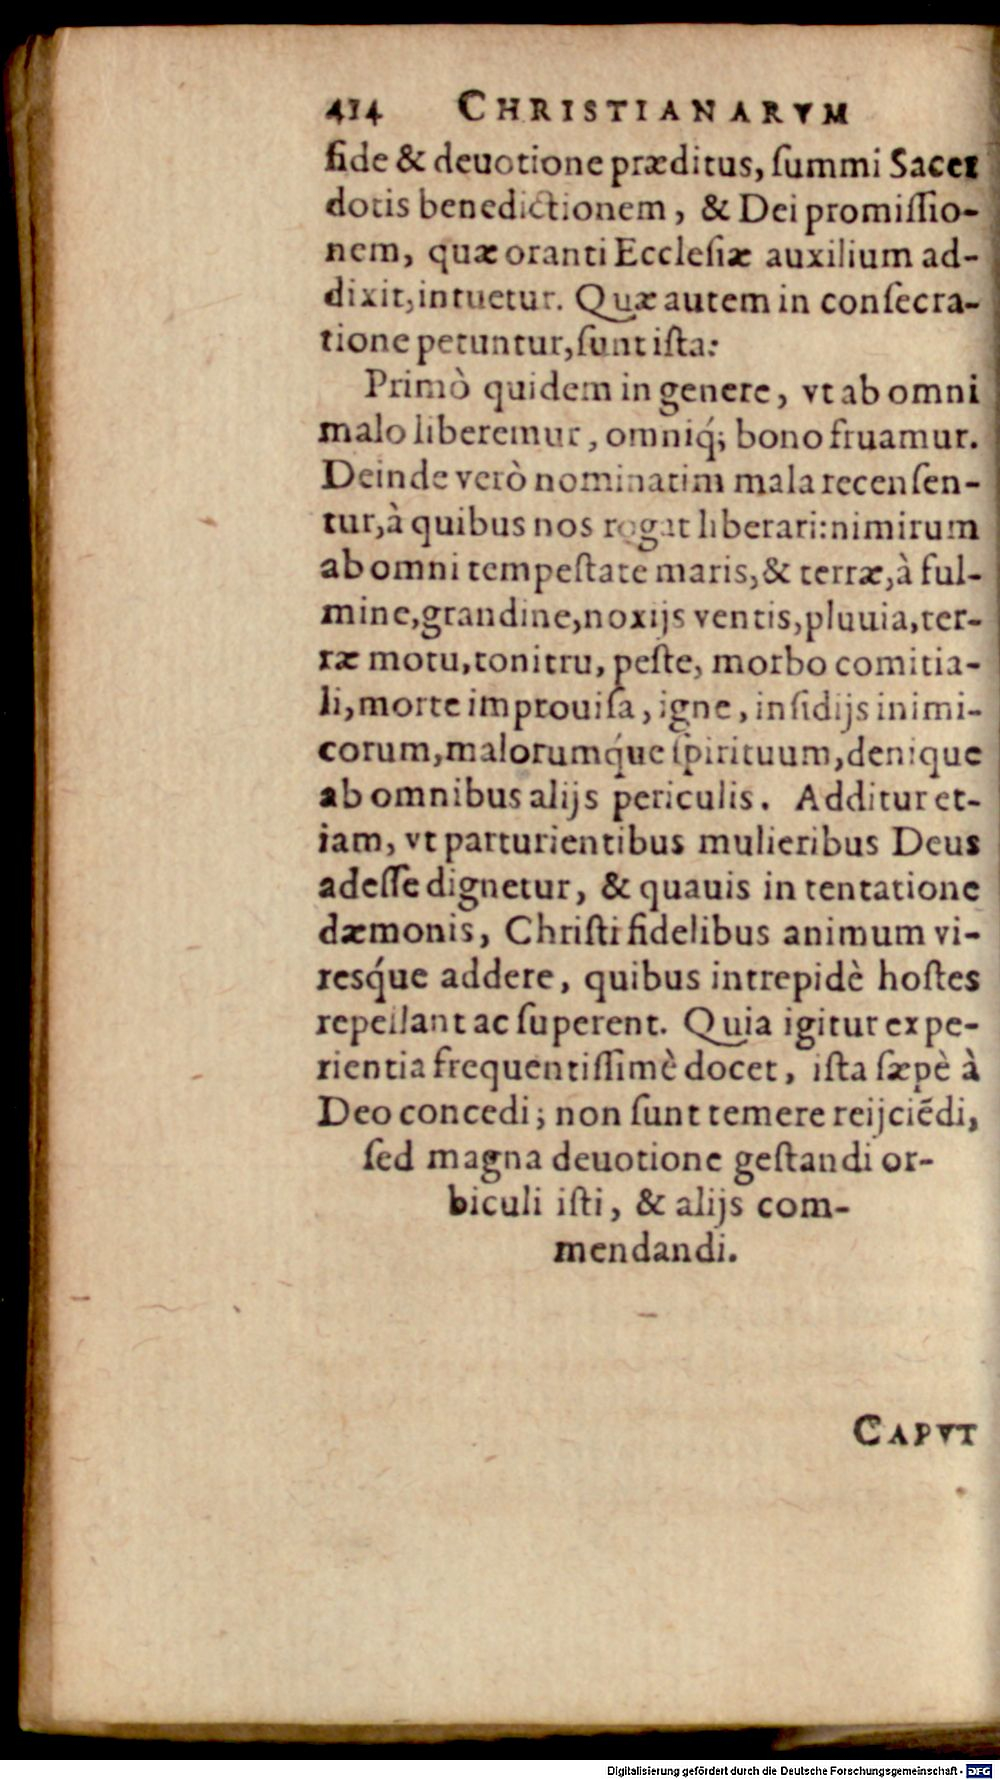 414 CHRISTIANARVM
fide & deuotione præditus, ſummi Sacer
dotis benedictionem, & Dei promiſſio-
nem, quæ oranti Eccleſiæ auxilium ad-
dixit, intuetur. Quæ autem in conſecra-
tione petuntur, ſunt iſta:
Primò quidem in genere, vt ab omni
malo liberemur, omniq́; bono fruamur.
Deinde verò nominatim mala recenſen-
tur, à quibus nos rogat liberari: nimirum
ab omni tempeſtate maris, & terræ, à ful-
mine, grandine, noxijs ventis, pluuia, ter-
ræ motu, tonitru, peſte, morbo comitia-
li, morte improuiſa, igne, inſidijs inimi-
corum, malorumq́ue ſpirituum, denique
ab omnibus alijs periculis. Additur et-
iam, vt parturientibus mulieribus Deus
adeſſe dignetur, & quauis in tentatione
dæmonis, Chriſti fidelibus animum vi-
resq́ue addere, quibus intrepidè hoſtes
repellant ac ſuperent. Quia igitur expe-
rientia frequentiſſimè docet, iſta ſæpè à
Deo concedi; non ſunt temere reijciẽdi,
ſed magna deuotione geſtandi or-
biculi iſti, & alijs com-
mendandi.
CAPVT
Digitalisierung gefördert durch die Deutsche Forschungsgemeinschaft - DFG